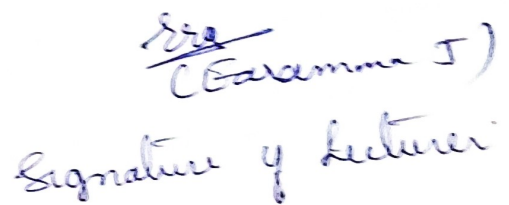 (Earamma J)
Signature of Lecturer